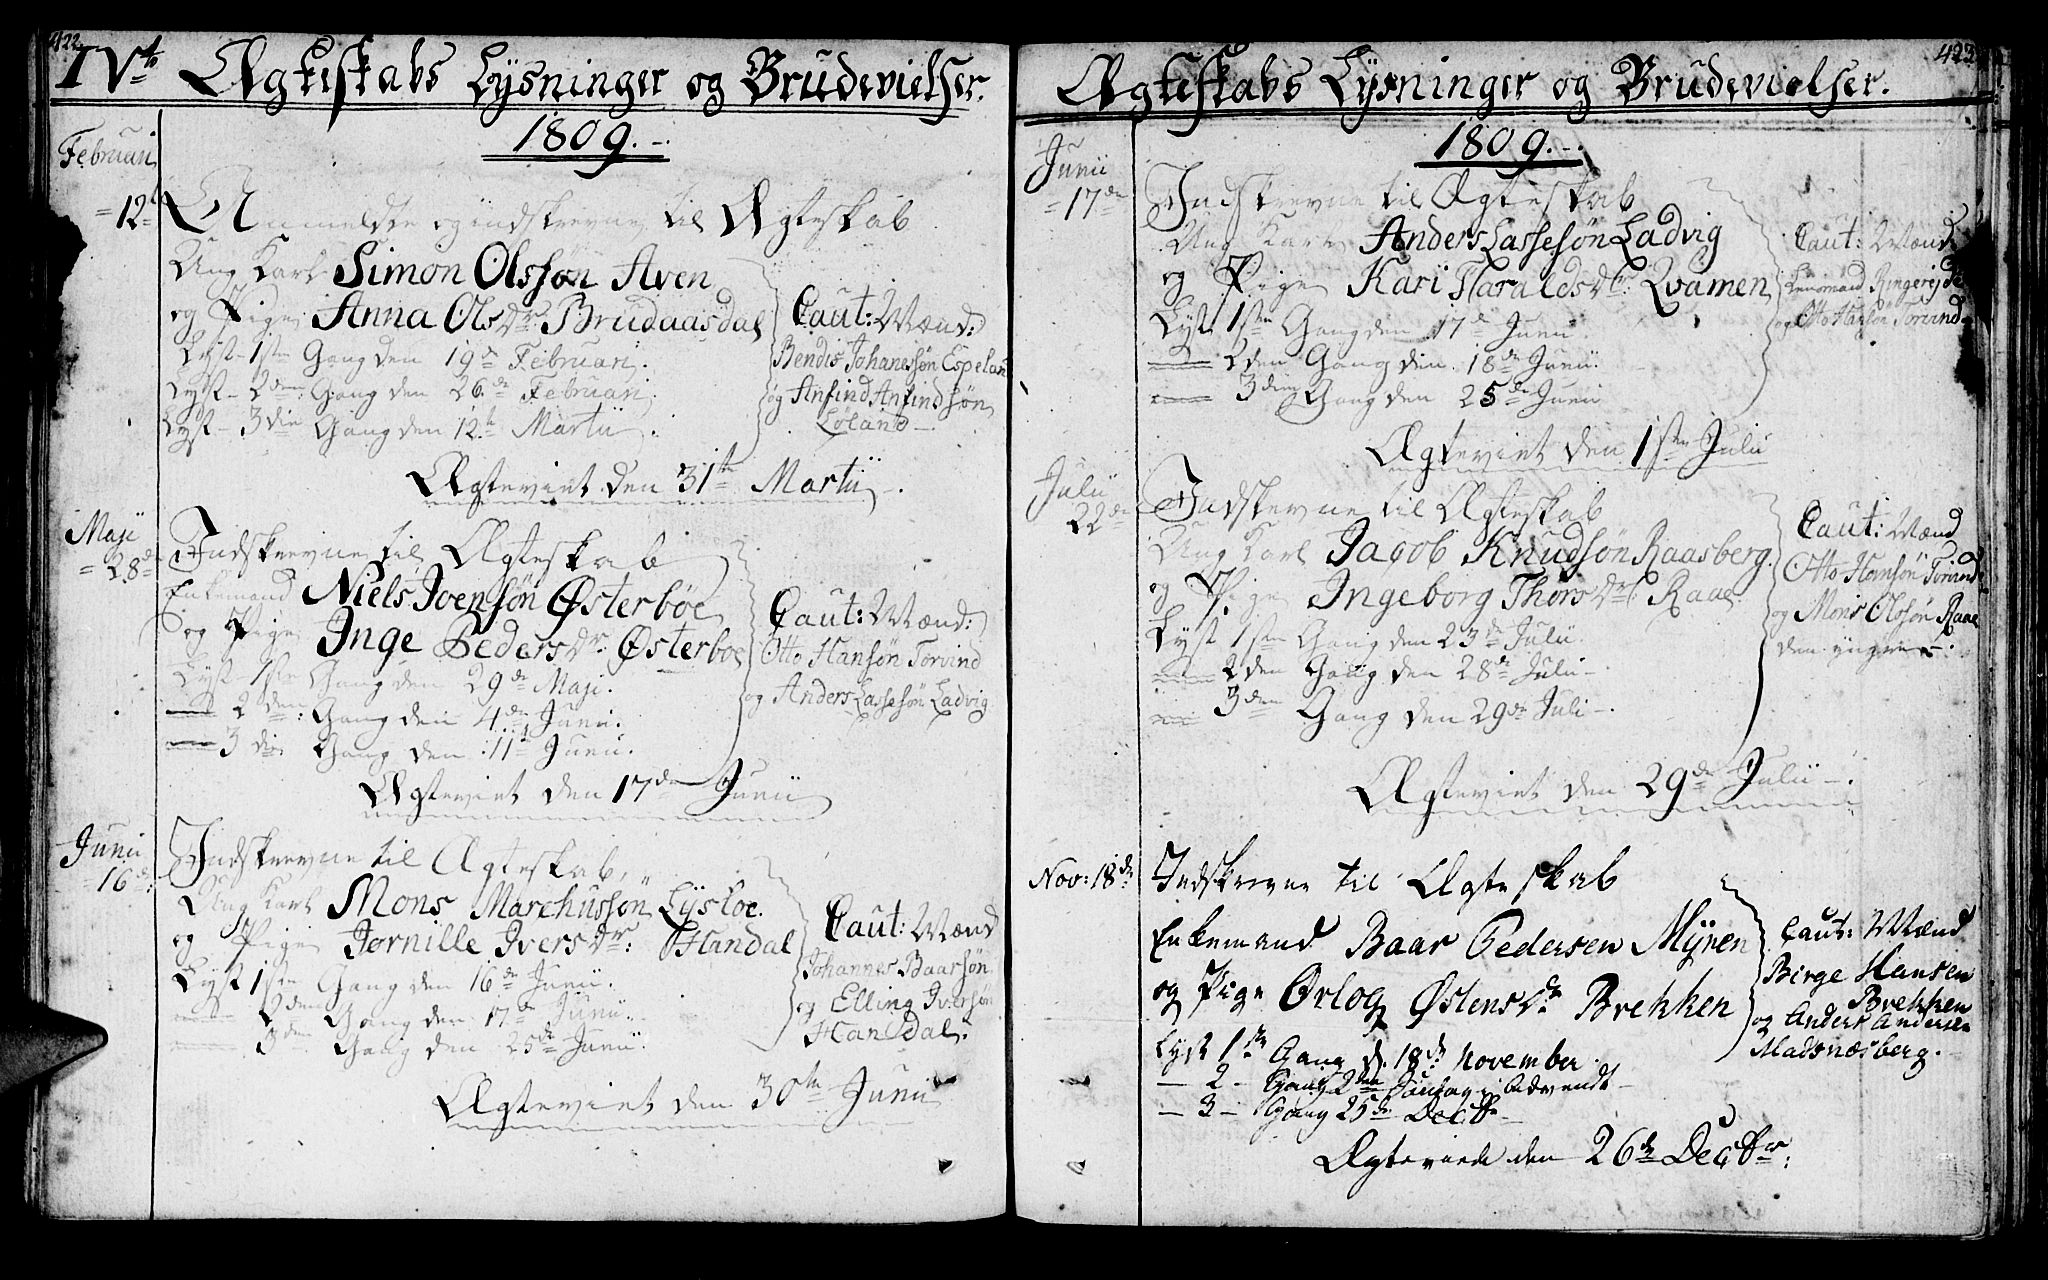 422
IVt Ægteskabs Lysninger og Brudevielser.
1809.
Februari
12t
Anmeldte og indskrevne til Ægteskab
Ung Karl Simon Olssøn Aven
og Pige Anna Olsdr Brudaasdal
Lyst 1ste Gang den 19de Februari.
Lyst 2den Gang den 26de Februari.
Lyst 3die Gang den 12te Martii.
Caut: Mænd:
Bendis Johanessøn Espelan
og Anfind Anfindsøn
Løland
Ægteviet den 31te Martii.
Maji
28de
Indskrevne til Ægteskab
Enkemand Niels Joensøn Østerbøe
og Pige Inge Pedersdr. Østerboe
Lyst 1ste Gang den 29de Maji.
2den: Gang den 4de Junii.
3die Gang den 11te Junii.
Caut: Mænd:
Otto Hansøn Torvind
og Anders Lassesøn Ladvig
Ægteviet den 17de Junii
Junii
16de:
Indskrevne til Ægteskab,
Ung Karl Mons Marchussøn Lysloe.
og Pige Jornille Iversdr: Handal
Lyst 1ste Gang den 16de Junii.
2den Gang den 17de Junii.
3den Gang den 25de Junii
Caut: Mænd
Johannes Baarsøn
og Elling Iversøn
Handal.
Ægteviet den 30te Junii
423
Ægteskabs Lysninger og Brudevielser.
1809.
Junii
17de
Indskrevne til Ægteskab
Ung Karl Anders Lassesøn Ladvig
og Pige Kari Haraldsdr: Qvamen
Lyst 1ste Gang den 17de Junii.
2den Gang den 18de Junii.
3die Gang den 25de Junii
Caut: Mænd
Lensmand Ringereide
og Otto Hansøn Torvind
Ægteviet den 1ste Julii
Julii
22de
Indskrevne til Ægteskab
Ung Karl Jacob Knudsøn Raasberg.
og Pige Ingeborg Thorsdr Raae.
Lyst 1ste Gang den 23de Julii.
2den Gang den 28de Julii
3den Gang den 29de Juli.
Caut: Mænd
Otto Hansøn Torvind
og Mons Olssøn Raae
den yngre.
Ægteviet den 29de Julii.
Nov: 18de
Indskrevne til Ægteskab
Enkemand Baar Pedersen Myren
og Pige Ørlog Østensdr Brekken
Lyst 1ste Gang d. 18de November.
2 Gang 2den Søndag i Advendt
3 Gang 25de Decbr
Caut: Mænd
Birge Hansen
Brekken
og Anders Andersen
Madsnæsberg.
Ægteviede den 26de Decbr: